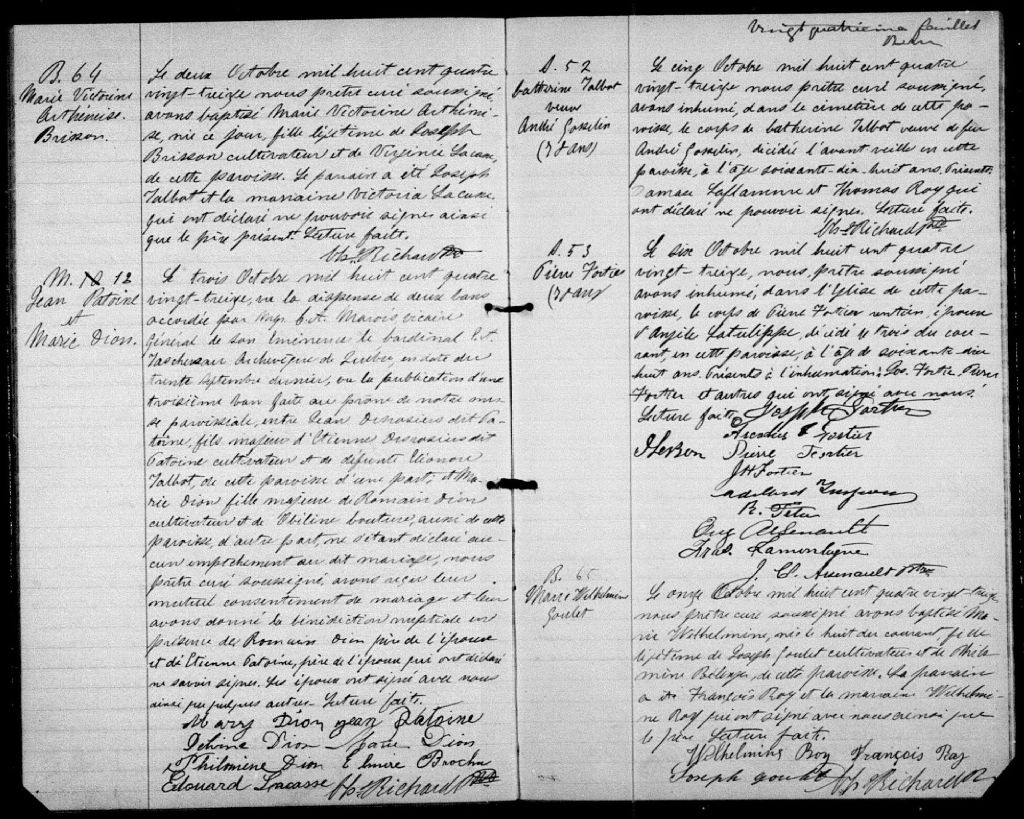 B. 64
Marie Victorine
Arthémise
Brisson.
Le deux Octobre mil huit cent quatre
vingt-treize nous prêtre curé soussigné,
avons baptisé Marie Victorine Arthémi-
se, née ce jour, fille légitime de Joseph
Brisson cultivateur et de Virginie Lacasse,
de cette paroisse. Le parrain a été Joseph
Talbot et la marraine Victoria Lacasse,
qui ont déclaré ne pouvoir signer ainsi
que le père présent. Lecture faite.
Chs Richard Ptre
M. 12
Jean Patoine
et
Marie Dion.
Le trois Octobre mil huit cent quatre
vingt-treize, vu la dispense de deux bans
accordée par Mgr C. A. Marois vicaire
général de son éminence le Cardinal E. A.
Taschereau Archevêque de Québec en date du
trente septembre dernier, vu la publication d'une
troisième ban faite au prône de notre mes-
se paroissiale, entre Jean Desrosiers dit Pa-
toine, fils majeur d'Etienne Desrosiers dit
Patoine cultivateur et de défunte Eléonore
Talbot, de cette paroisse d'une part; et Ma-
rie Dion fille majeure de Romain Dion
cultivateur et de Obéline Couture, aussi de cette
paroisse, d'autre part, ne s'étant déclaré au-
cun empêchement au dit mariage, nous
prêtre curé soussigné, avons reçu leur
mutuel consentement de mariage et leur
avons donné la bénédiction nuptiale en
présence de Romain Dion père de l'épouse
et d'Etienne Patoine, père de l'époux qui ont déclaré
ne savoir signer. Les époux ont signé avec nous
ainsi que quelques autres. Lecture faite.
Mary Dion Jean Patoine
Delvina Dion Marie Dion
Philmène Dion Elmire Brochu
Edouard Lacasse Chs Richard Ptre
Vingt quatrième feuillet
S. 52
Catherine Talbot
veuve
André Gosselin
(78 ans)
Le cinq Octobre mil huit cent quatre
vingt-treize nous prêtre curé soussigné,
avons inhumé, dans le cimetière de cette pa-
roisse, le corps de Catherine Talbot veuve de feu
André Gosselin, décédée l'avant veille en cette
paroisse, à l'âge soixante-dix-huit ans. Présents
Damase Laflamme et Thomas Roy qui
ont déclaré ne pouvoir signer. Lecture faite.
Chs Richard Ptre
S. 53
Pierre Fortier
(78 ans)
Le six Octobre mil huit cent quatre
vingt-treize, nous, prêtre soussigné
avons inhumé, dans l'Eglise de cette pa-
roisse, le corps de Pierre Fortier rentier, époux
d'Angèle Latulippe, décédé le trois du cou-
rant, en cette paroisse, à l'âge de soixante-dix
huit ans. Présents à l'inhumation: Jos. Fortier Pierre
Fortier et autres qui ont signé avec nous.
Lecture faite. Joseph Fortier
Fortier
Pierre Fortier
JH Fortier
Adélard Turgeon
Arsenault
Lamontagne
J. Cl. Arsenault Ptre
B. 65
Marie Wilhelmine
Goulet
Le onze Octobre mil huit cent quatre vingt-treize
nous prêtre curé soussigné avons baptisé Ma-
rie Wilhelmine, née le huit du courant, fille
légitime de Joseph Goulet cultivateur et de Philo-
mène Bélanger, de cette paroisse. Le parrain
a été François Roy et la marraine Wilhelmi-
ne Roy qui ont signé avec nous ainsi que
le père Lecture faite.
Wilhelmine Roy François Roy
Joseph Goulet Chs Richard Ptre